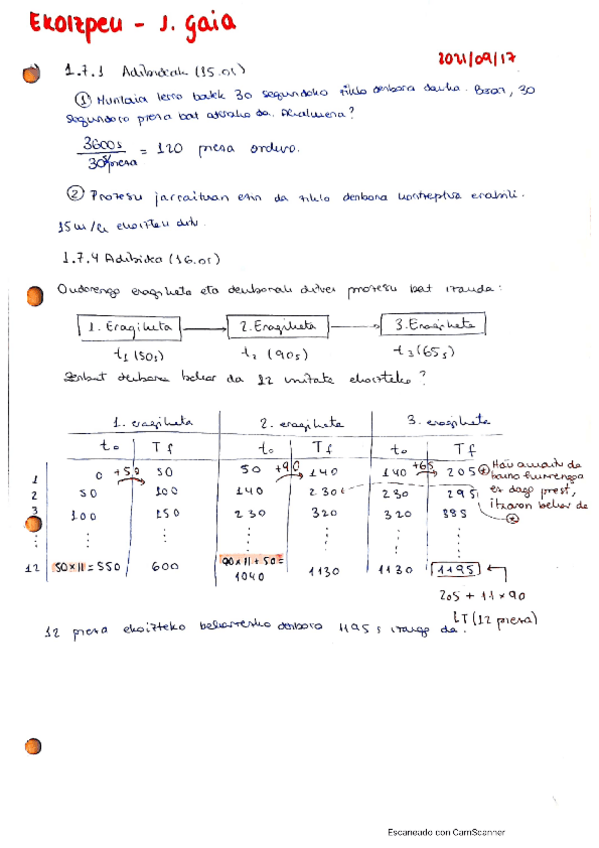 EKOIZPEN - 1. Gaia
2021/09/17
1.7.1 Adibideak (15.or)
① Muntaia lerro batek 30 segundoko ziklo denbora dauka. Beraz, 30
segunduro pieza bat aterako da. Ahalmena?
3600s / 30 s/pieza = 120 pieza orduro.
② Prozesu jarraituan ezin da ziklo denbora kontzeptua erabili.
15m/ 
1.7.4 Adibidea (16.or)
Ondorengo eragiketa eta denborak dituen prozesu bat izanda:
1. Eragiketa 2. Eragiketa 3. Eragiketa
t1 (50s) t2 (90s) t3 (65s)
Zenbat denbora behar da 12 unitate ekoizteko?
1. eragiketa 2. eragiketa 3. eragiketa
to Tf to Tf to Tf
1 0 +50 50 50 +90 140 140 +65 205 * Hau amaitu da
baino hurrengoa
2 50 100 140 230 230 295 ez dago prest,
3 100 150 230 320 320 385 itxaron behar da
⋮ ⋮ ⋮ ⋮ ⋮ ⋮ ⋮
12 50×11=550 600 90×11+50=1040 1130 1130 1195
205 + 11×90
LT (12 pieza)
12 pieza ekoizteko beharrezko denbora 1195 s izango da.
Escaneado con CamScanner